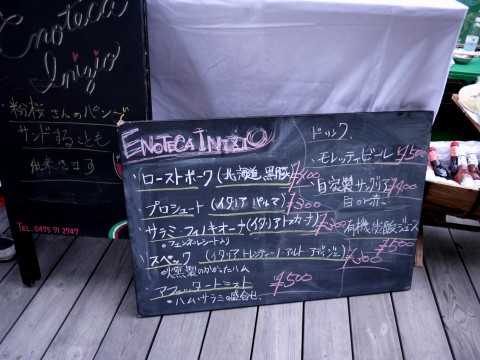 Enoteca
Inizio
粉桜さんのパンで
サンドすることも
出来ます
TEL.0475
ENOTECA INIZIO
・ローストポーク(北海道 黒豚)
・プロシュート(イタリア パルマ) ¥300
・サラミ・フィノキオーナ(イタリアトスカーナ) ¥300
・フェンネルシード入り
・スペック (イタリアトレンティーノ・アルト アディジェ) ¥300
・燻製のかかったハム
・アフェッタートミスト ¥500
・ハム、サラミの盛合せ
ドリンク
・モレッティビール ¥500
・自家製サングリア ¥400
赤 or 白
・有機炭酸ジュース
¥500